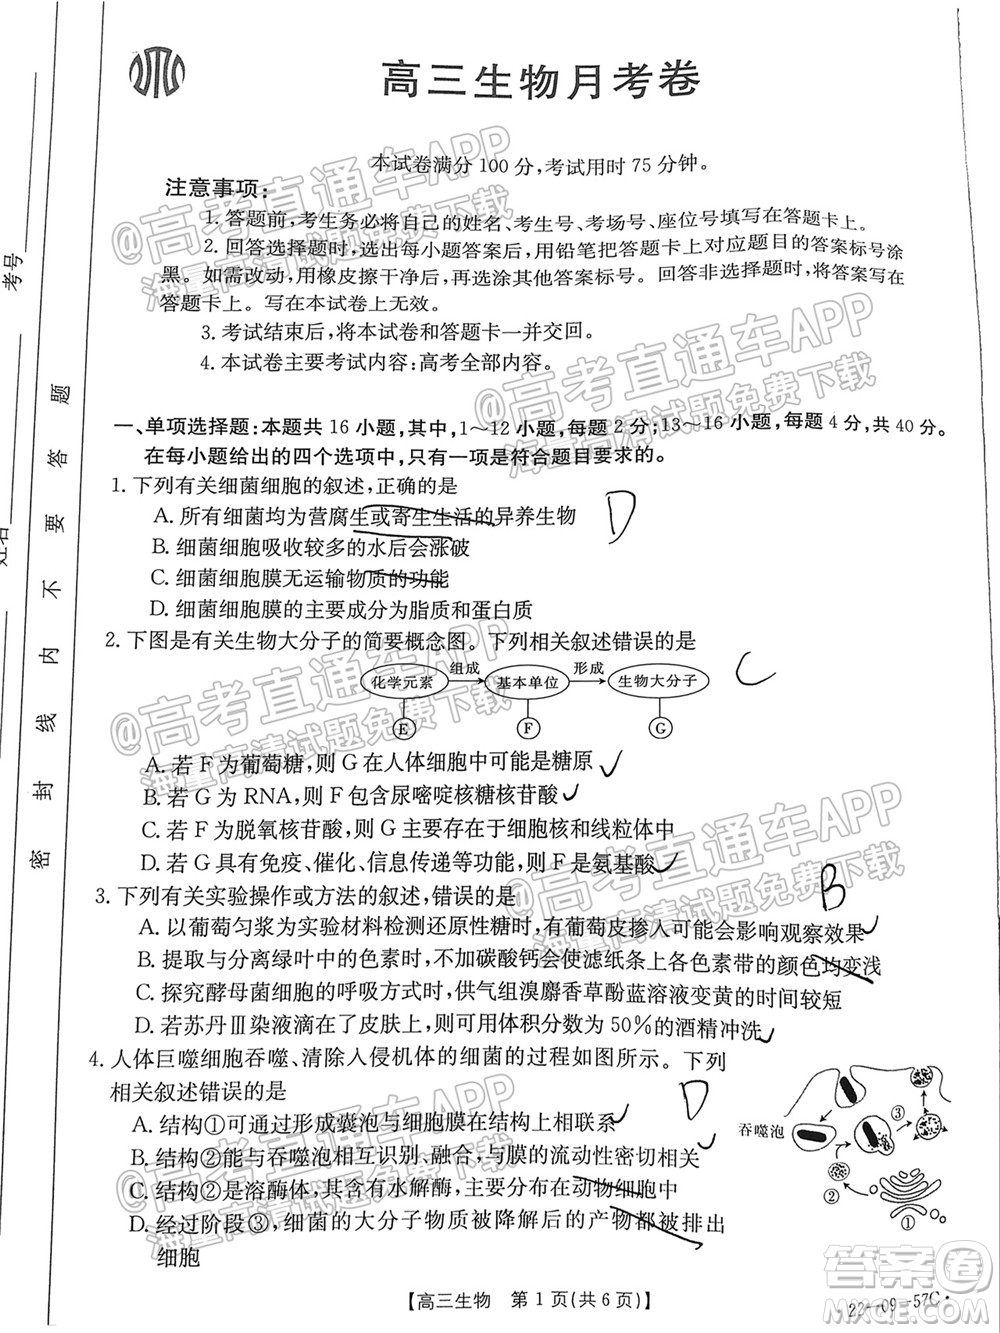 高三生物月考卷
本试卷满分100分,考试用时75分钟。
注意事项:
1. 答题前,考生务必将自己的姓名、考生号、考场号、座位号填写在答题卡上。
2. 回答选择题时,选出每小题答案后,用铅笔把答题卡上对应题目的答案标号涂
黑。如需改动,用橡皮擦干净后,再选涂其他答案标号。回答非选择题时,将答案写在
答题卡上。写在本试卷上无效。
3. 考试结束后,将本试卷和答题卡一并交回。
4. 本试卷主要考试内容:高考全部内容。
一、单项选择题:本题共16小题,其中,1~12小题,每题2分;13~16小题,每题4分,共40分。
在每小题给出的四个选项中,只有一项是符合题目要求的。
1. 下列有关细菌细胞的叙述,正确的是
A. 所有细菌均为营腐生或寄生生活的异养生物
D
B. 细菌细胞吸收较多的水后会涨破
C. 细菌细胞膜无运输物质的功能
D. 细菌细胞膜的主要成分为脂质和蛋白质
2. 下图是有关生物大分子的简要概念图。下列相关叙述错误的是
C
化学元素 组成 基本单位 形成 生物大分子
E F G
A. 若F为葡萄糖,则G在人体细胞中可能是糖原
B. 若G为RNA,则F包含尿嘧啶核糖核苷酸
C. 若F为脱氧核苷酸,则G主要存在于细胞核和线粒体中
D. 若G具有免疫、催化、信息传递等功能,则F是氨基酸
3. 下列有关实验操作或方法的叙述,错误的是
B
A. 以葡萄匀浆为实验材料检测还原性糖时,有葡萄皮掺入可能会影响观察效果
B. 提取与分离绿叶中的色素时,不加碳酸钙会使滤纸条上各色素带的颜色均变浅
C. 探究酵母菌细胞的呼吸方式时,供气组溴麝香草酚蓝溶液变黄的时间较短
D. 若苏丹Ⅲ染液滴在了皮肤上,可用体积分数为50%的酒精冲洗
4. 人体巨噬细胞吞噬、清除入侵机体的细菌的过程如图所示。下列
相关叙述错误的是
D
A. 结构①可通过形成囊泡与细胞膜在结构上相联系
B. 结构②能与吞噬泡相互识别、融合,与膜的流动性密切相关
C. 结构②是溶酶体,其含有水解酶,主要分布在动物细胞中
D. 经过阶段③,细菌的大分子物质被降解后的产物都被排出
细胞
吞噬泡
③
②
①
【高三生物 第1页(共6页)】
·22-09-57C·
考号
姓名
密封线内不要答题
@高考直通车APP
海量高清试题免费下载
@高考直通车APP
海量高清试题免费下载
@高考直通车APP
海量高清试题免费下载
@高考直通车APP
海量高清试题免费下载
@高考直通车APP
海量高清试题免费下载
答案圈
MXQE.COM